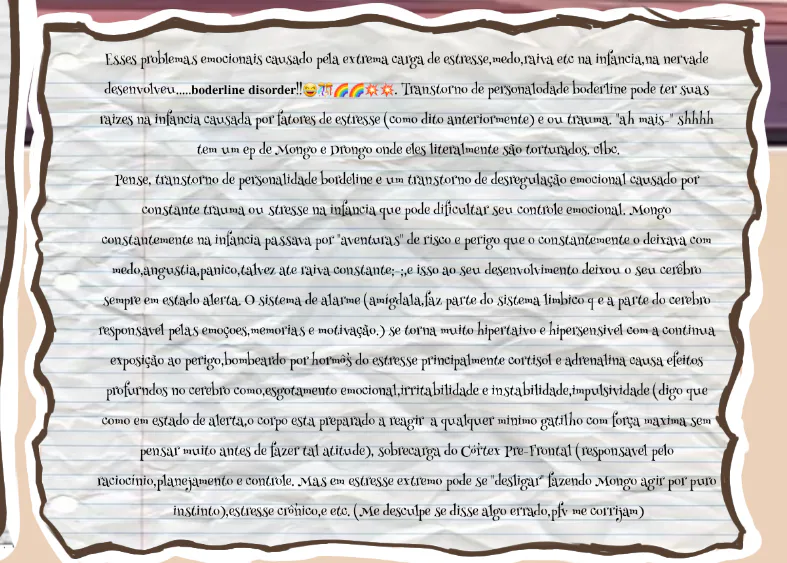 Esses problemas emocionais causado pela extrema carga de estresse,medo,raiva etc na infancia,na nervade
desenvolveu.....boderline disorder!!😅🎊🌈🌈💥💥. Transtorno de personalodade boderline pode ter suas
raizes na infancia causada por fatores de estresse (como dito anteriormente) e ou trauma. "ah mais-" shhhh
tem um ep de Mongo e Drongo onde eles literalmente são torturados. clbc.
Pense, transtorno de personalidade bordeline e um transtorno de desregulação emocional causado por
constante trauma ou stresse na infancia que pode dificultar seu controle emocional. Mongo
constantemente na infancia passava por "aventuras" de risco e perigo que o constantemente o deixava com
medo,angustia,panico,talvez ate raiva constante;-;,e isso ao seu desenvolvimento deixou o seu cerebro
sempre em estado alerta. O sistema de alarme (amigdala,faz parte do sistema limbico q e a parte do cerebro
responsavel pelas emoçoes,memorias e motivação.) se torna muito hipertaivo e hipersensivel com a continua
exposição ao perigo,bombeardo por hormôs do estresse principalmente cortisol e adrenalina causa efeitos
profurndos no cerebro como,esgotamento emocional,irritabilidade e instabilidade,impulsividade (digo que
como em estado de alerta,o corpo esta preparado a reagir a qualquer minimo gatilho com força maxima sem
pensar muito antes de fazer tal atitude), sobrecarga do Córtex Pre-Frontal (responsavel pelo
raciocínio,planejamento e controle. Mas em estresse extremo pode se "desligar" fazendo Mongo agir por puro
instinto),estresse crônico,e etc. (Me desculpe se disse algo errado,pfv me corrijam)